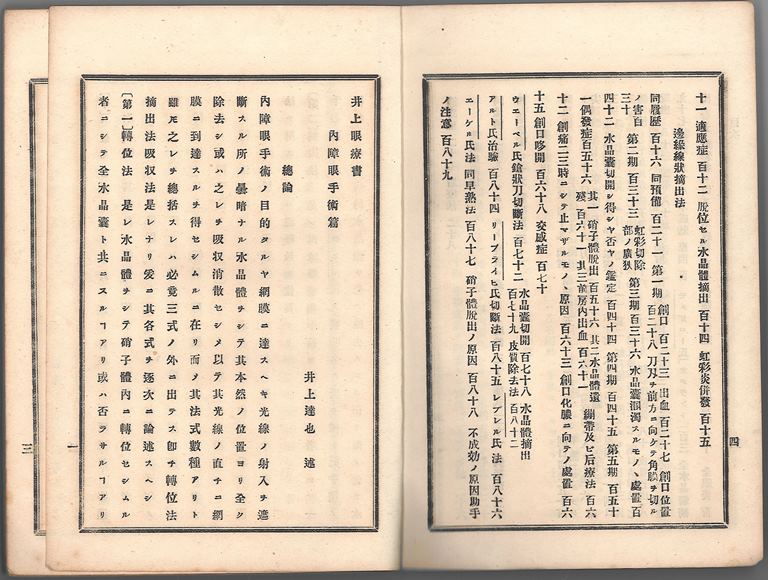 十一 適應症 百十二 脱位セル水晶體摘出 百十四 虹彩炎併發 百十五
邊緣線狀摘出法
同履歴 百十六 同預備 百二十一 第一期 創口 百二十三 出血 百二十七 創口位置
百二十八 刀刄ヲ前方ニ向ケテ角膜ヲ切ル
ノ害 百三十 第二期 百三十三 虹彩切除部ノ廣狹 第三期 百三十六 水晶囊溷濁スルモノヽ處置 百
四十二 水晶囊切開シ得シヤ否ヤノ鑑定 百四十四 第四期 百四十五 第五期 百五十
一 偶發症 百五十六 其一硝子體脱出 百五十六 其二水晶體遺殘 百六十一 其三前房内出血 百六十一 繃帶及ヒ后療法 百六
十二 創痛二三時ニシテ止マザルモノヽ原因 百六十三 創口化膿ニ向テノ處置 百六
十五 創口哆開 百六十八 交感症 百七十
ウエーベル氏鎗狀刀切斷法 百七十二 水晶囊切開 百七十八 水晶體摘出
百七十九 皮質除去法 百八十二
アルト氏治驗 百八十四 リーブライヒ氏切斷法 百八十五 レブレル氏法 百八十六
エーケル氏法 同早熟法 百八十七 硝子體脱出ノ原因 百八十八 不成効ノ原因助手
ノ注意 百八十九
四
井上眼療書
内障眼手術篇
井上達也 述
總論
内障眼手術ノ目的タルヤ網膜ニ達スヘキ光線ノ射入ヲ遮
斷スル所ノ曇暗ナル水晶體ヲシテ其本然ノ位置ヨリ全ク
除去シ或ハ之レヲ吸収消散セシメ以テ其光線ノ直チニ網
膜ニ到達スルヲ得セシムルニ在リ而〆其法式數種アリト
雖𪜈之レヲ總括スレハ必竟三式ノ外ニ出テス卽チ轉位法
摘出法吸収法是レナリ爰ニ其各式ヲ逐次ニ論述スヘシ
〔第一〕轉位法 是レ水晶體ヲシテ硝子體内ニ轉位セシムル
者ニシテ全水晶囊ト共ニスルヿアリ或ハ否ラサルヿアリ
一
三